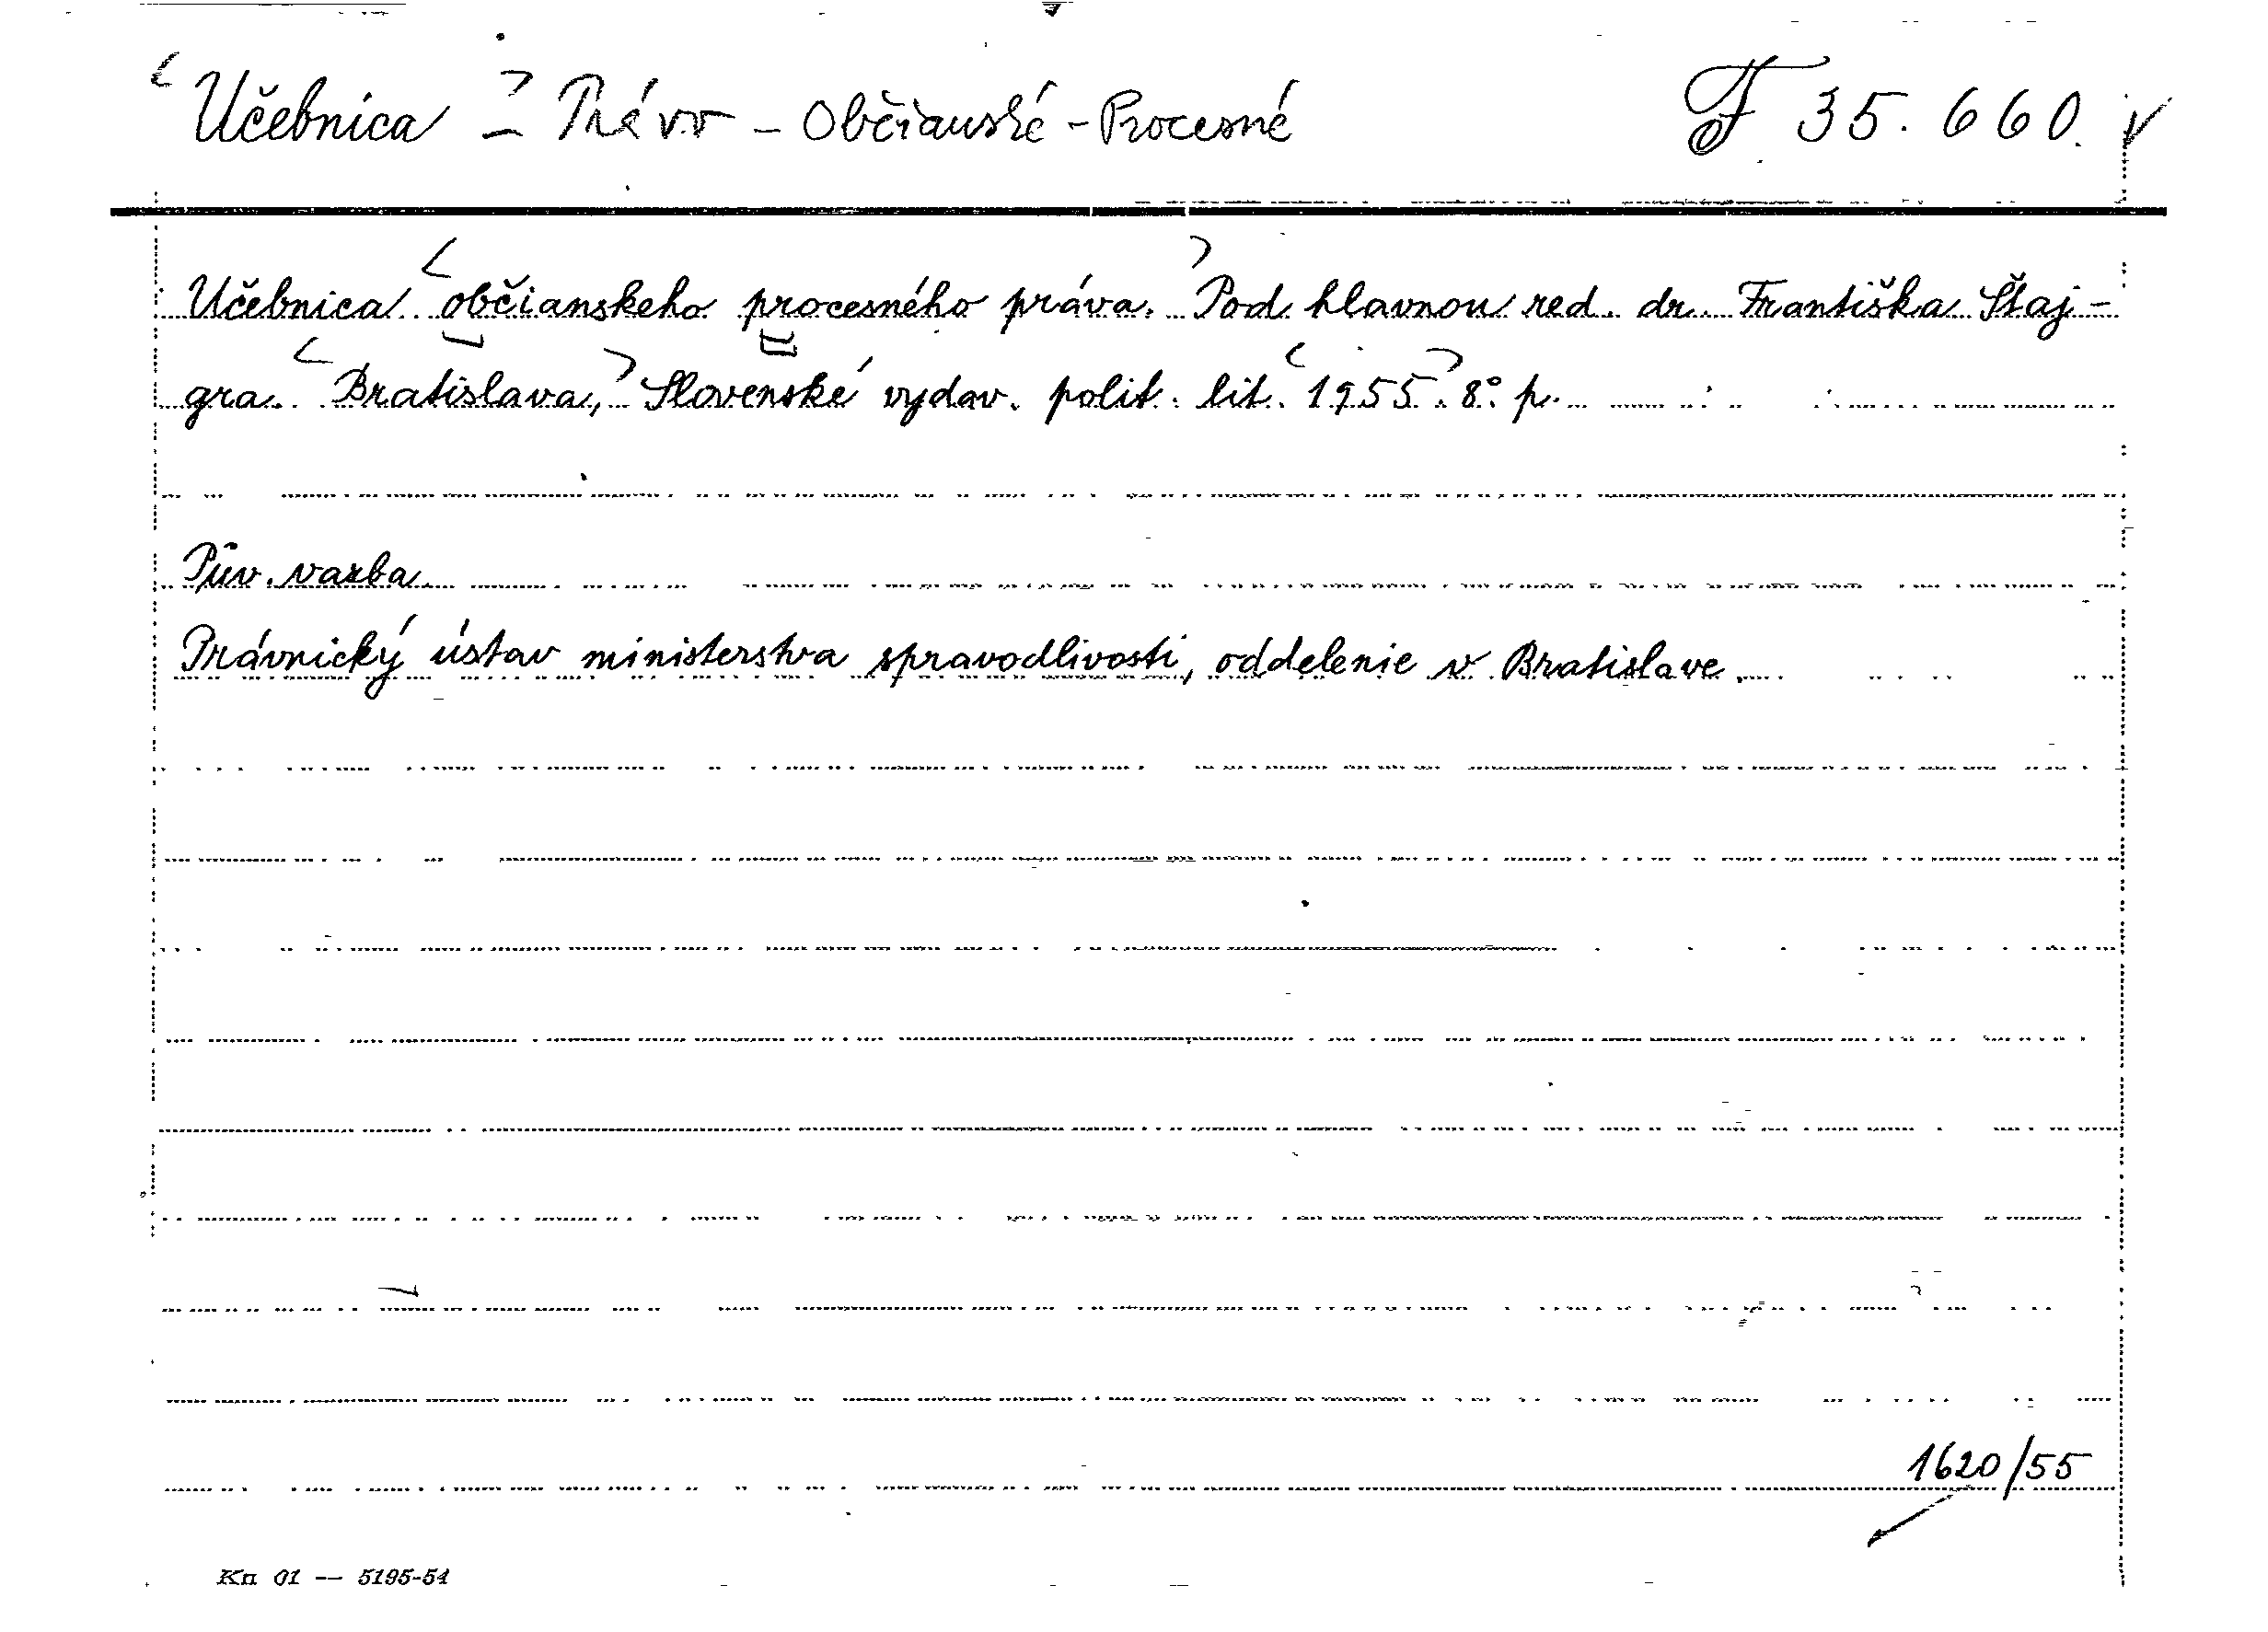 Učebnica - Právo - Občianské - Procesné F 35.660.
Učebnica občianskeho procesného práva. Pod hlavnou red. dr. Františka Štaj-
gra. Bratislava, Slovenské vydav. polit. lit. 1955. 8°. p.
Pův. vazba.
Právnický ústav ministerstva spravodlivosti, oddelenie v Bratislave.
1620/55
Kn 01 — 5195-54